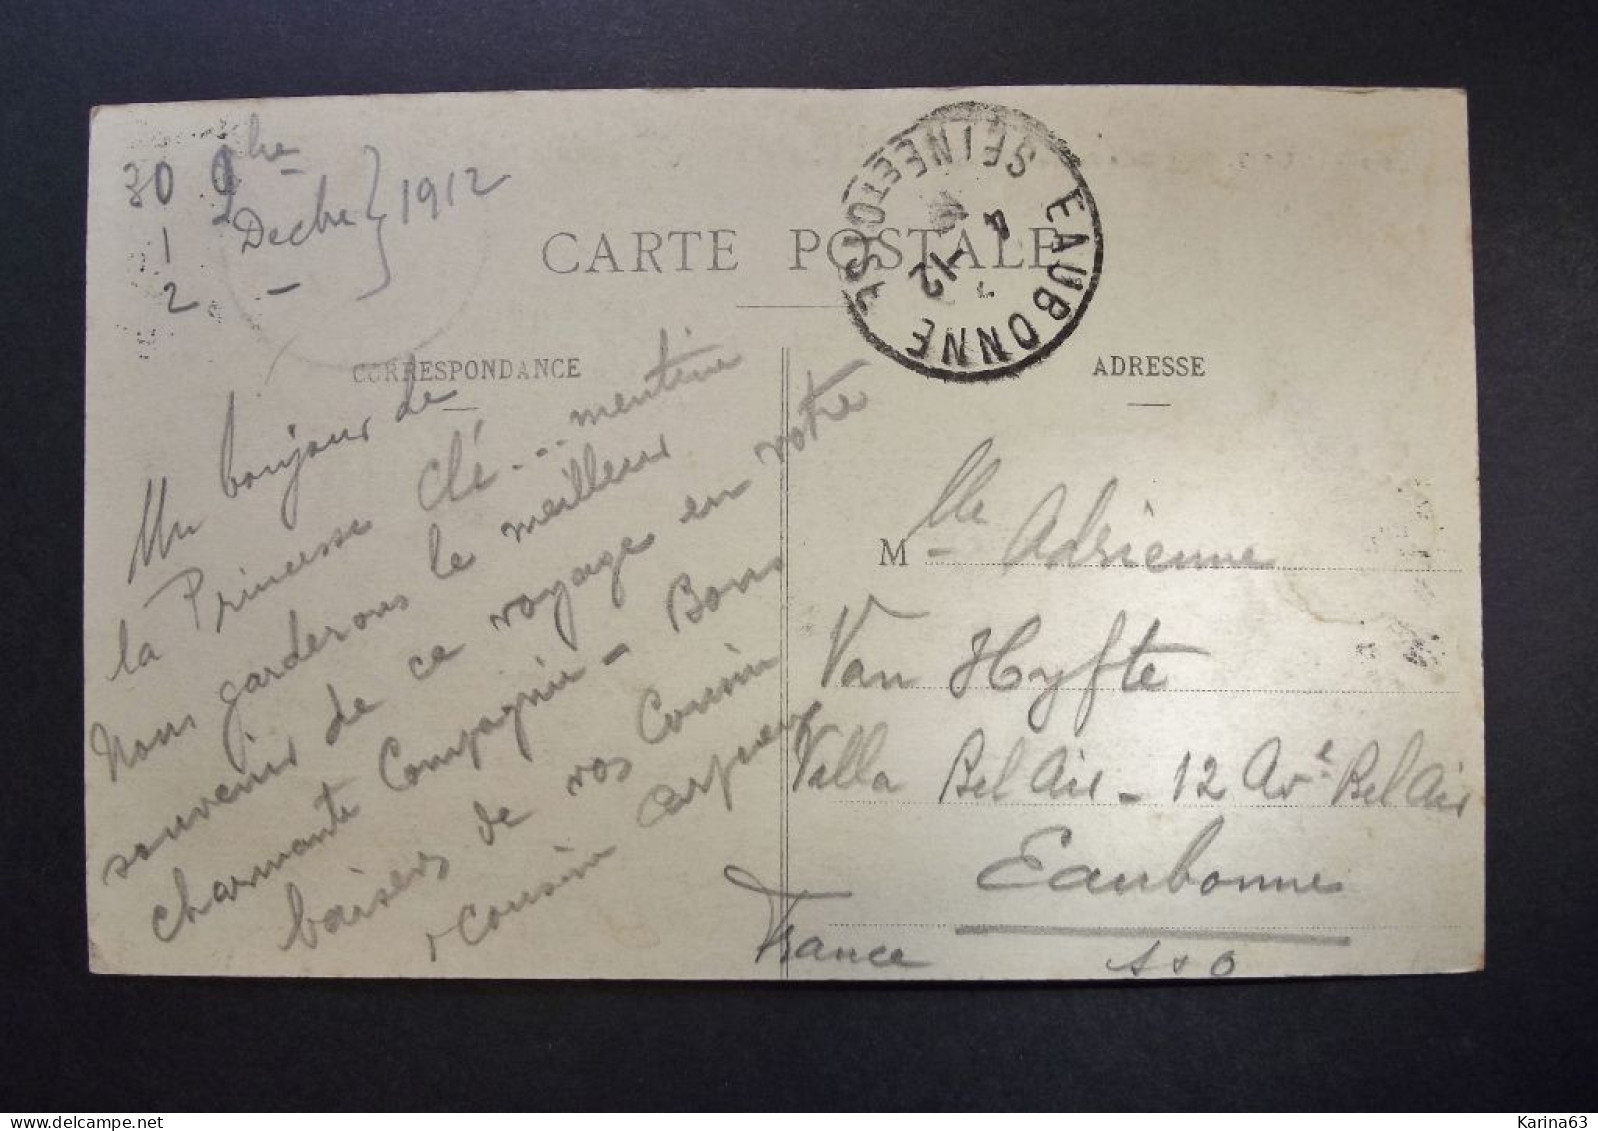 30 9bre
1 Decbre } 1912
2 —
CARTE POSTALE
EAUBONNE SEINE ET OISE
4 -12
CORRESPONDANCE
ADRESSE
Un bonjour de
la Princesse Clé...mentine
Nous garderons le meilleur
souvenir de ce voyage en votre
charmante Compagnie – Bons
baisers de vos Cousin
& Cousine
Mlle Adrienne
Van Hyfte
Villa Bel Air – 12 Ave Bel Air
Eaubonne
France S & O
Karina63